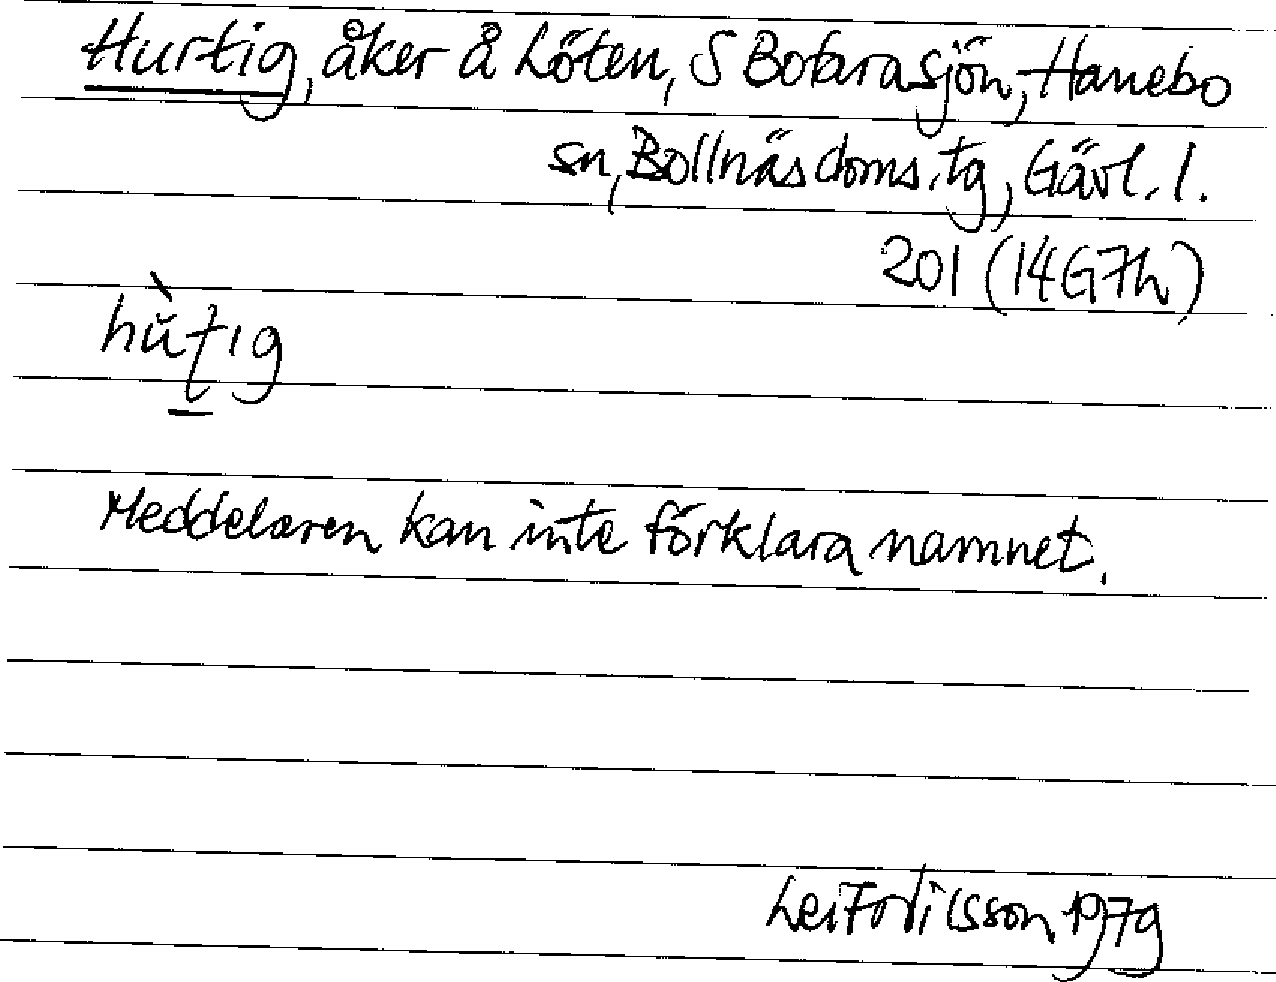 Hurtig, åker å Löten, S Bofarasjön, Hanebo
sn, Bollnäs doms.tg, Gävl. l.
201 (14G7h)
Meddelaren kan inte förklara namnet.
Leif Nilsson 1979